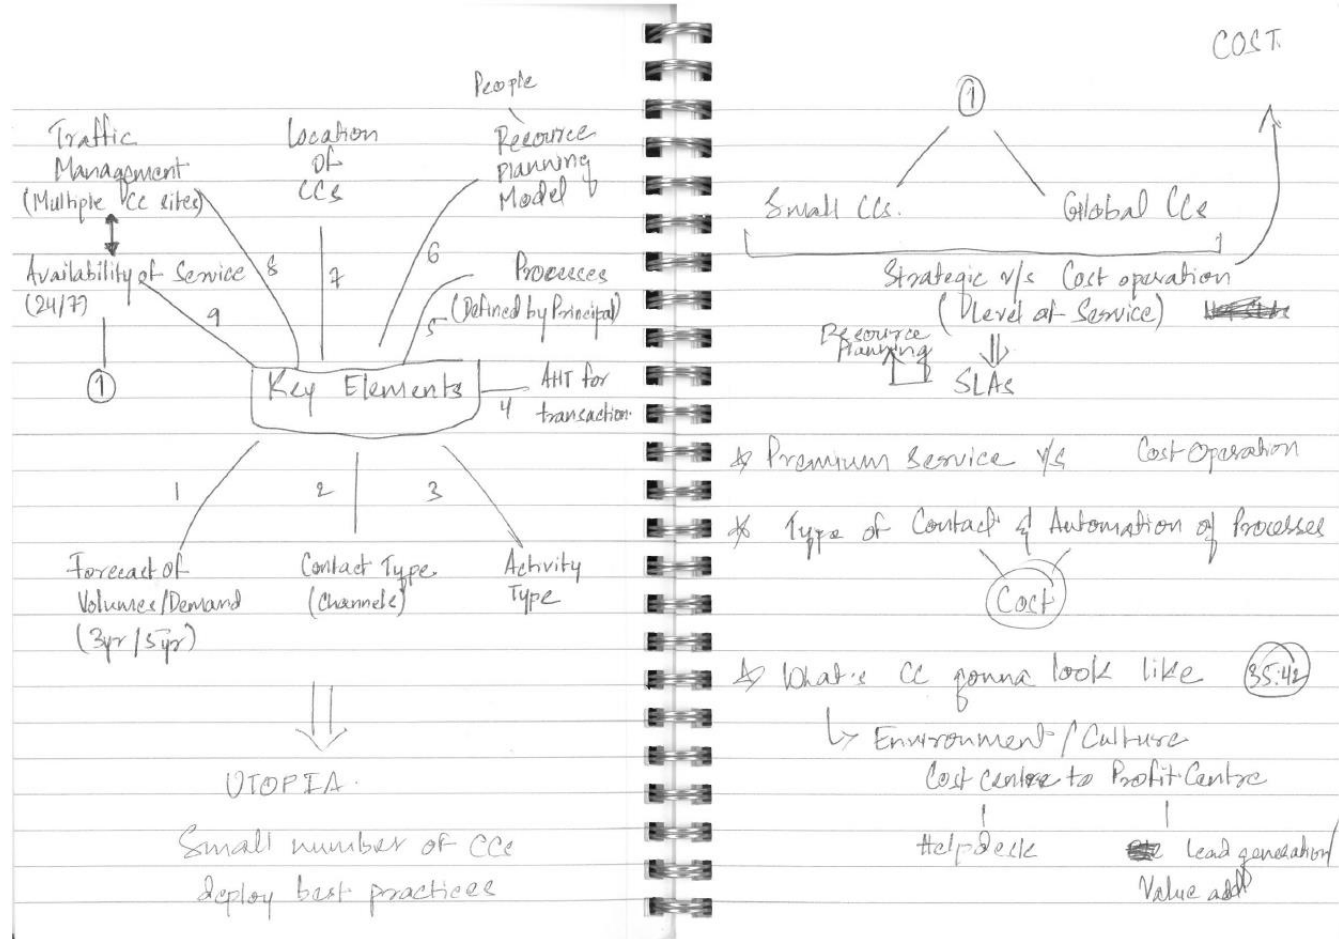 People
Traffic
Management
(Multiple CC sites)
Location
of
CCs
Resource
Planning
Model
Availability of Service
(24/7)
8
7
6
Processes
(Defined by Principal)
9
5
1
Key Elements
4
AHT for
transaction.
1
2
3
Forecast of
Volumes/Demand
(3yr/5yr)
Contact Type
(Channels)
Activity
Type
UTOPIA.
Small number of CCs
deploy best practices
COST.
1
Small CCs.
Global CCs
Strategic v/s Cost operation
(Level of Service)
Resource
Planning
SLAs
Premium Service v/s Cost Operation
Type of Contact & Automation of Processes
Cost
What's CC gonna look like 35:42
Environment/Culture
Cost Centre to Profit Centre
Helpdesk
Lead generation/
Value add